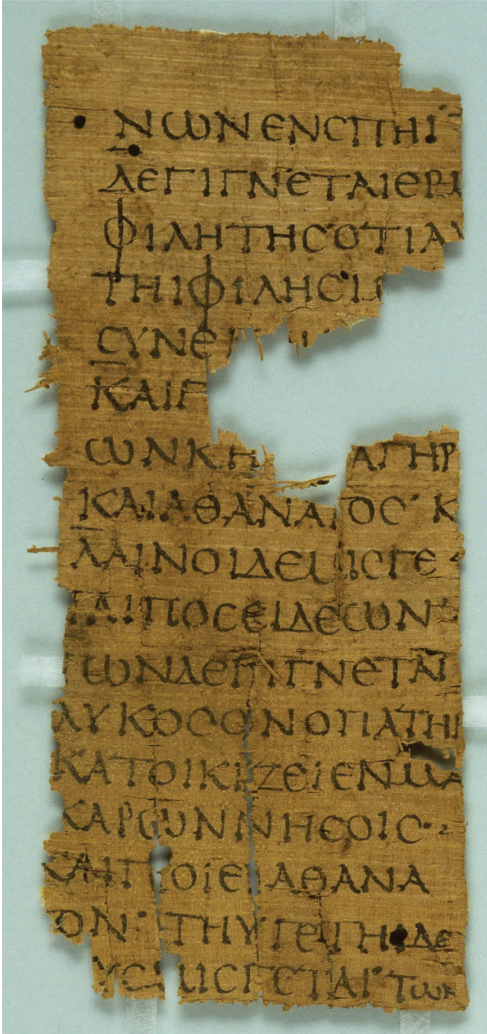 ΝΩΝΕΝϹΠΗΙ
ΔΕΓΙΓΝΕΤΑΙΕΡΜ
ΦΙΛΗΤΗϹΟΤΙΑΥ
ΤΗΙΦΙΛΗϹΙ
ϹΥΝΕ
ΚΑΙΓ
ΩΝΚΗ ΑΓΗΡ
ΚΑΙΑΘΑΝΑΤΟϹ· Κ
ΛΑΙΝΟΙΔΕΜΙϹΓΕ
ΤΑΙΠΟϹΕΙΔΕΩΝ·
ΤΩΝΔΕΓΙΓΝΕΤΑΙ
ΛΥΚΟϹΟΝΟΠΑΤΗΡ
ΚΑΤΟΙΚΙΖΕΙΕΝΜΑ
ΚΑΡΩΝΝΗϹΟΙϹ·
ΚΑΙΠΟΙΕΙΑΘΑΝΑ
ΤΟΝ· ΤΗΥΓΕΤΗΙΔΕ
ΥϹΜΙϹΓΕΤΑΙ· ΤΩΝ